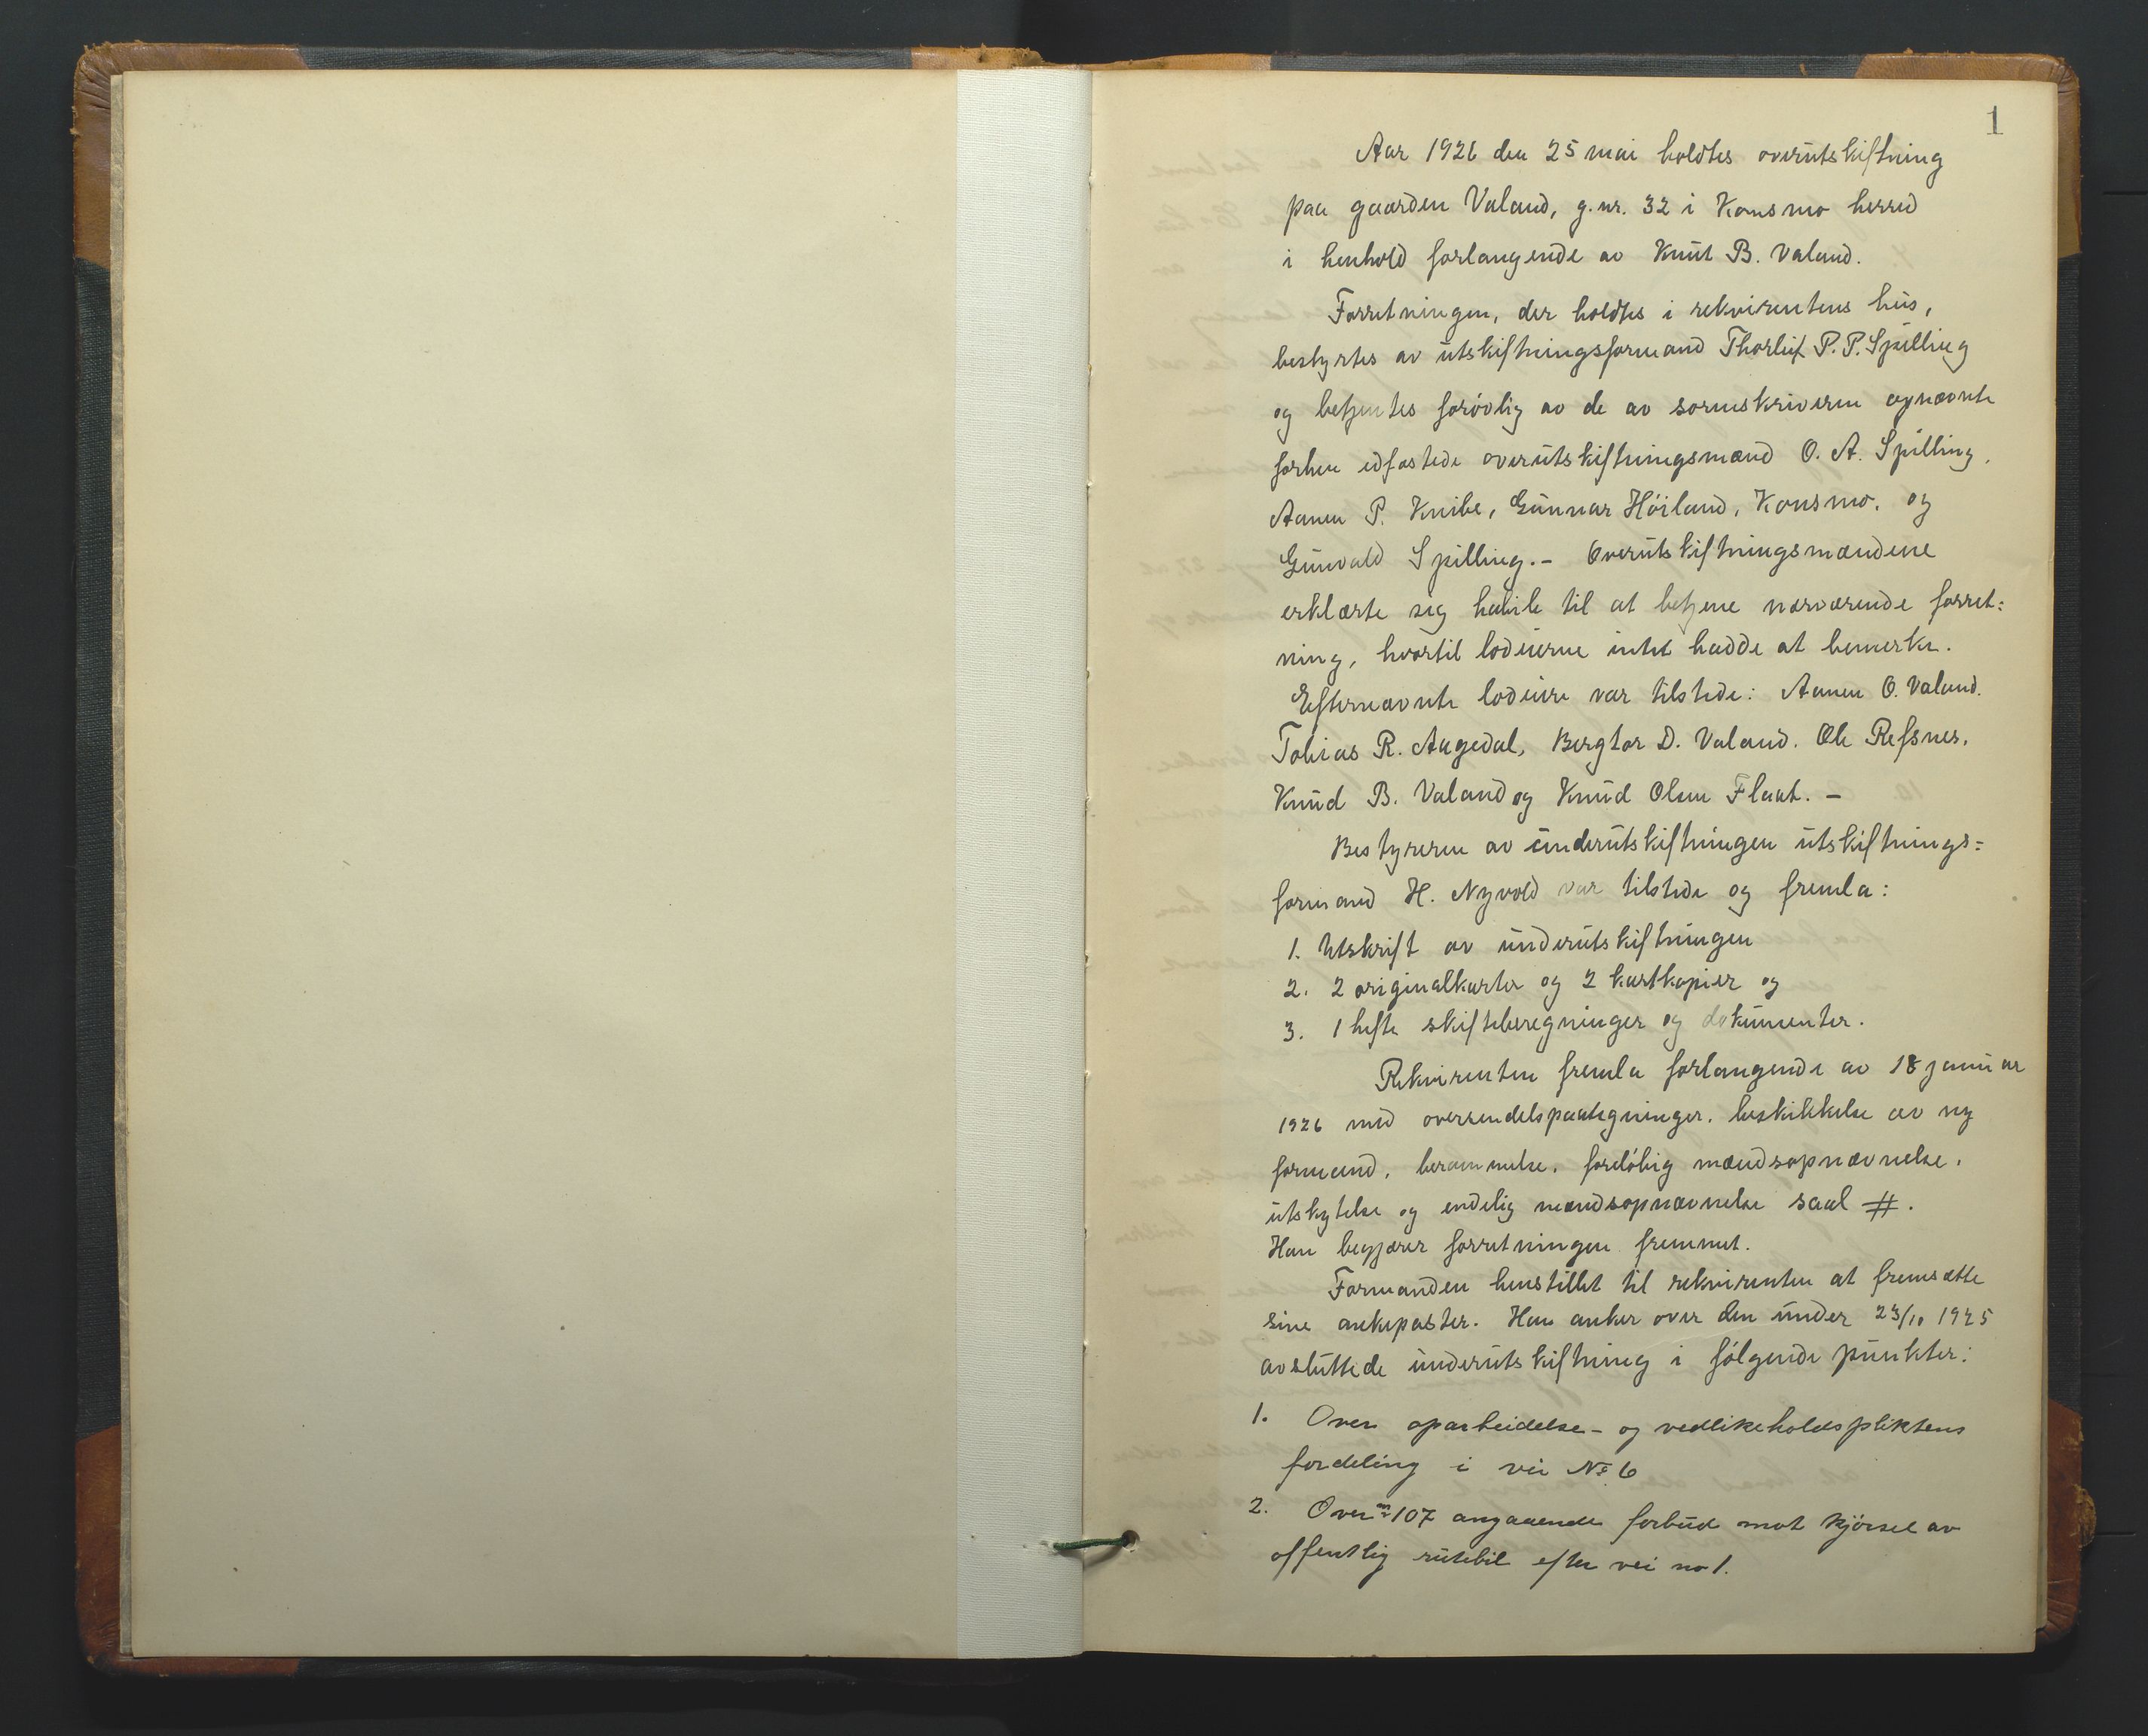 1
Aar 1926 den 25 mai holdtes overutskiftning
paa gaarden Valand, g.nr. 32 i Konsmo herred
i henhold forlangende av Knut B. Valand.
Forretningen, der holdtes i rekvirentens hus,
bestyrtes av utskiftningsformand Thorleif P. P. Spilling
og betjentes forøvlig av de av sorenskriveren opnævnte
forhen edfæstede overutskiftningsmænd O. A. Spilling,
Aanen P. Knibe, Gunnar Høiland, Konsmo, og
Gunvald Spilling. – Overutskiftningsmændene
erklærte sig habile til at betjene nærværende forret=
ning, hvortil lodeierne intet hadde at bemerke.
Efternævnte lodeiere var tilstede: Aanen O. Valand.
Tobias R. Augedal, Bergtor D. Valand. Ole Refsnes,
Knud B. Valand og Knud Olsen Flaat. –
Bestyreren av underutskiftningen utskiftnings=
formand H. Nyvold var tilstede og fremla:
1. Utskrift av underutskiftningen
2. 2 originalkarter og 2 kartkopier og
3. 1 hefte skifteberegninger og dokumenter.
Rekvirenten fremla forlangende av 18 januar
1926 med oversendelspaategninger, beskikkelse av ny
formand, berammelse, foreløbig mændsopnævnelse,
utskytelse og endelig mændsopnævnelse saal #.
Han begjærer forretningen fremmet.
Formanden henstillet til rekvirenten at fremsætte
sine ankeposter. Han anker over den under 23/10 1925
avsluttede underutskiftning i følgende punkter:
1. Over oparbeidelse- og vedlikeholdspliktens
fordeling i vei No 6
2. Over 107 angaaende forbud mot kjørsel av
offentlig rutebil efter vei no 1.